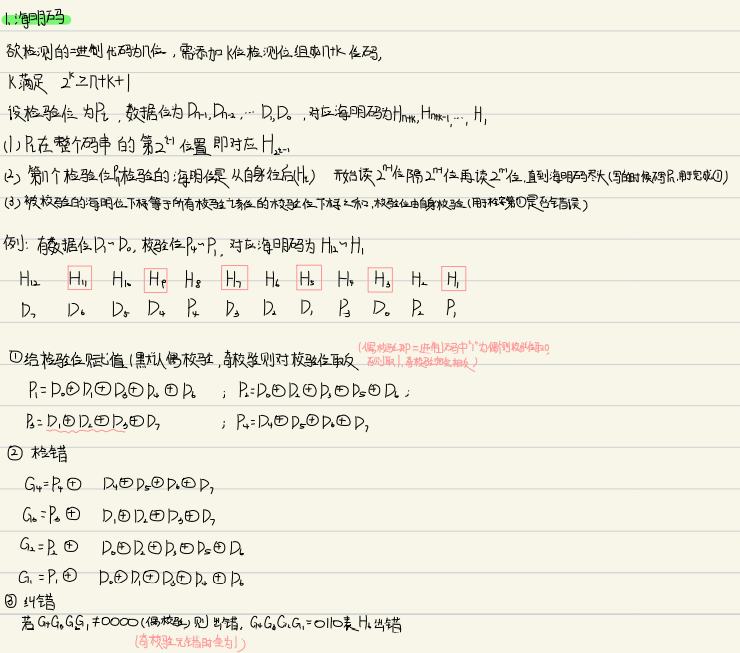 1.海明码
欲检测的二进制代码为n位,需添加k位检测位组成n+k位码,
k满足 2^k≥n+k+1
设检验位为Pi,数据位为Dn-1,Dn-2,…D1D0,对应海明码为Hn+k,Hn+k-1,…,H1
(1)Pi在整个码串的第2^i-1位置 即对应H2^i-1
(2)第i个检验位Pi检验的海明位是从自身往后 开始读2^i-1位隔2^i-1位再读2^i-1位,直到海明码尽头
(3)被校验的海明位下标等于所有校验该位的校验位下标之和,校验位由自身校验
例:有数据位D7~D0,校验位P4~P1,对应海明码为H12~H1
H12 H11 H10 H9 H8 H7 H6 H5 H4 H3 H2 H1
D7 D6 D5 D4 P4 D3 D2 D1 P3 D0 P2 P1
(偶校验即二进制码中"1"为偶则校验位取0,
否则取1,奇校验则相反)
①给检验位赋值(默认偶校验,奇校验则对校验位取反
P1=D0⊕D1⊕D3⊕D4⊕D6 ; P2=D0⊕D2⊕D3⊕D5⊕D6 ;
P3=D1⊕D2⊕D3⊕D7 ; P4=D4⊕D5⊕D6⊕D7
② 检错
G4=P4⊕ D4⊕D5⊕D6⊕D7
G3=P3⊕ D1⊕D2⊕D3⊕D7
G2=P2⊕ D0⊕D2⊕D3⊕D5⊕D6
G1=P1⊕ D0⊕D1⊕D3⊕D4⊕D6
③ 纠错
若G4G3G2G1≠0000(偶校验)则出错, G4G3G2G1=0110表H6出错
(奇校验无错时全为1)